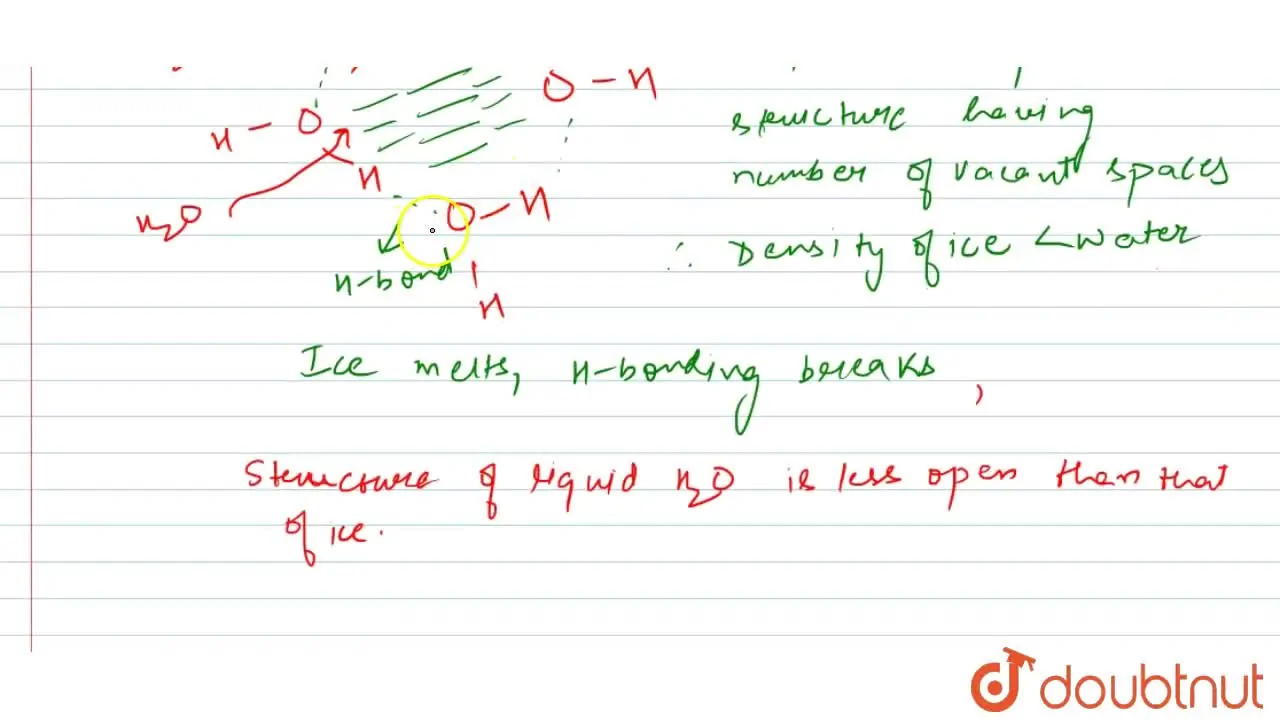 O - H
H - O
H
H2O
O - H
H-bond
H
structure having
number of vacant spaces
∴ Density of ice < Water
Ice melts, H-bonding breaks,
Structure of liquid H2O is less open than that
of ice.
doubtnut